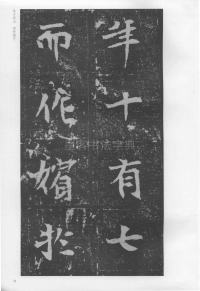 年十有七
而作嬪於